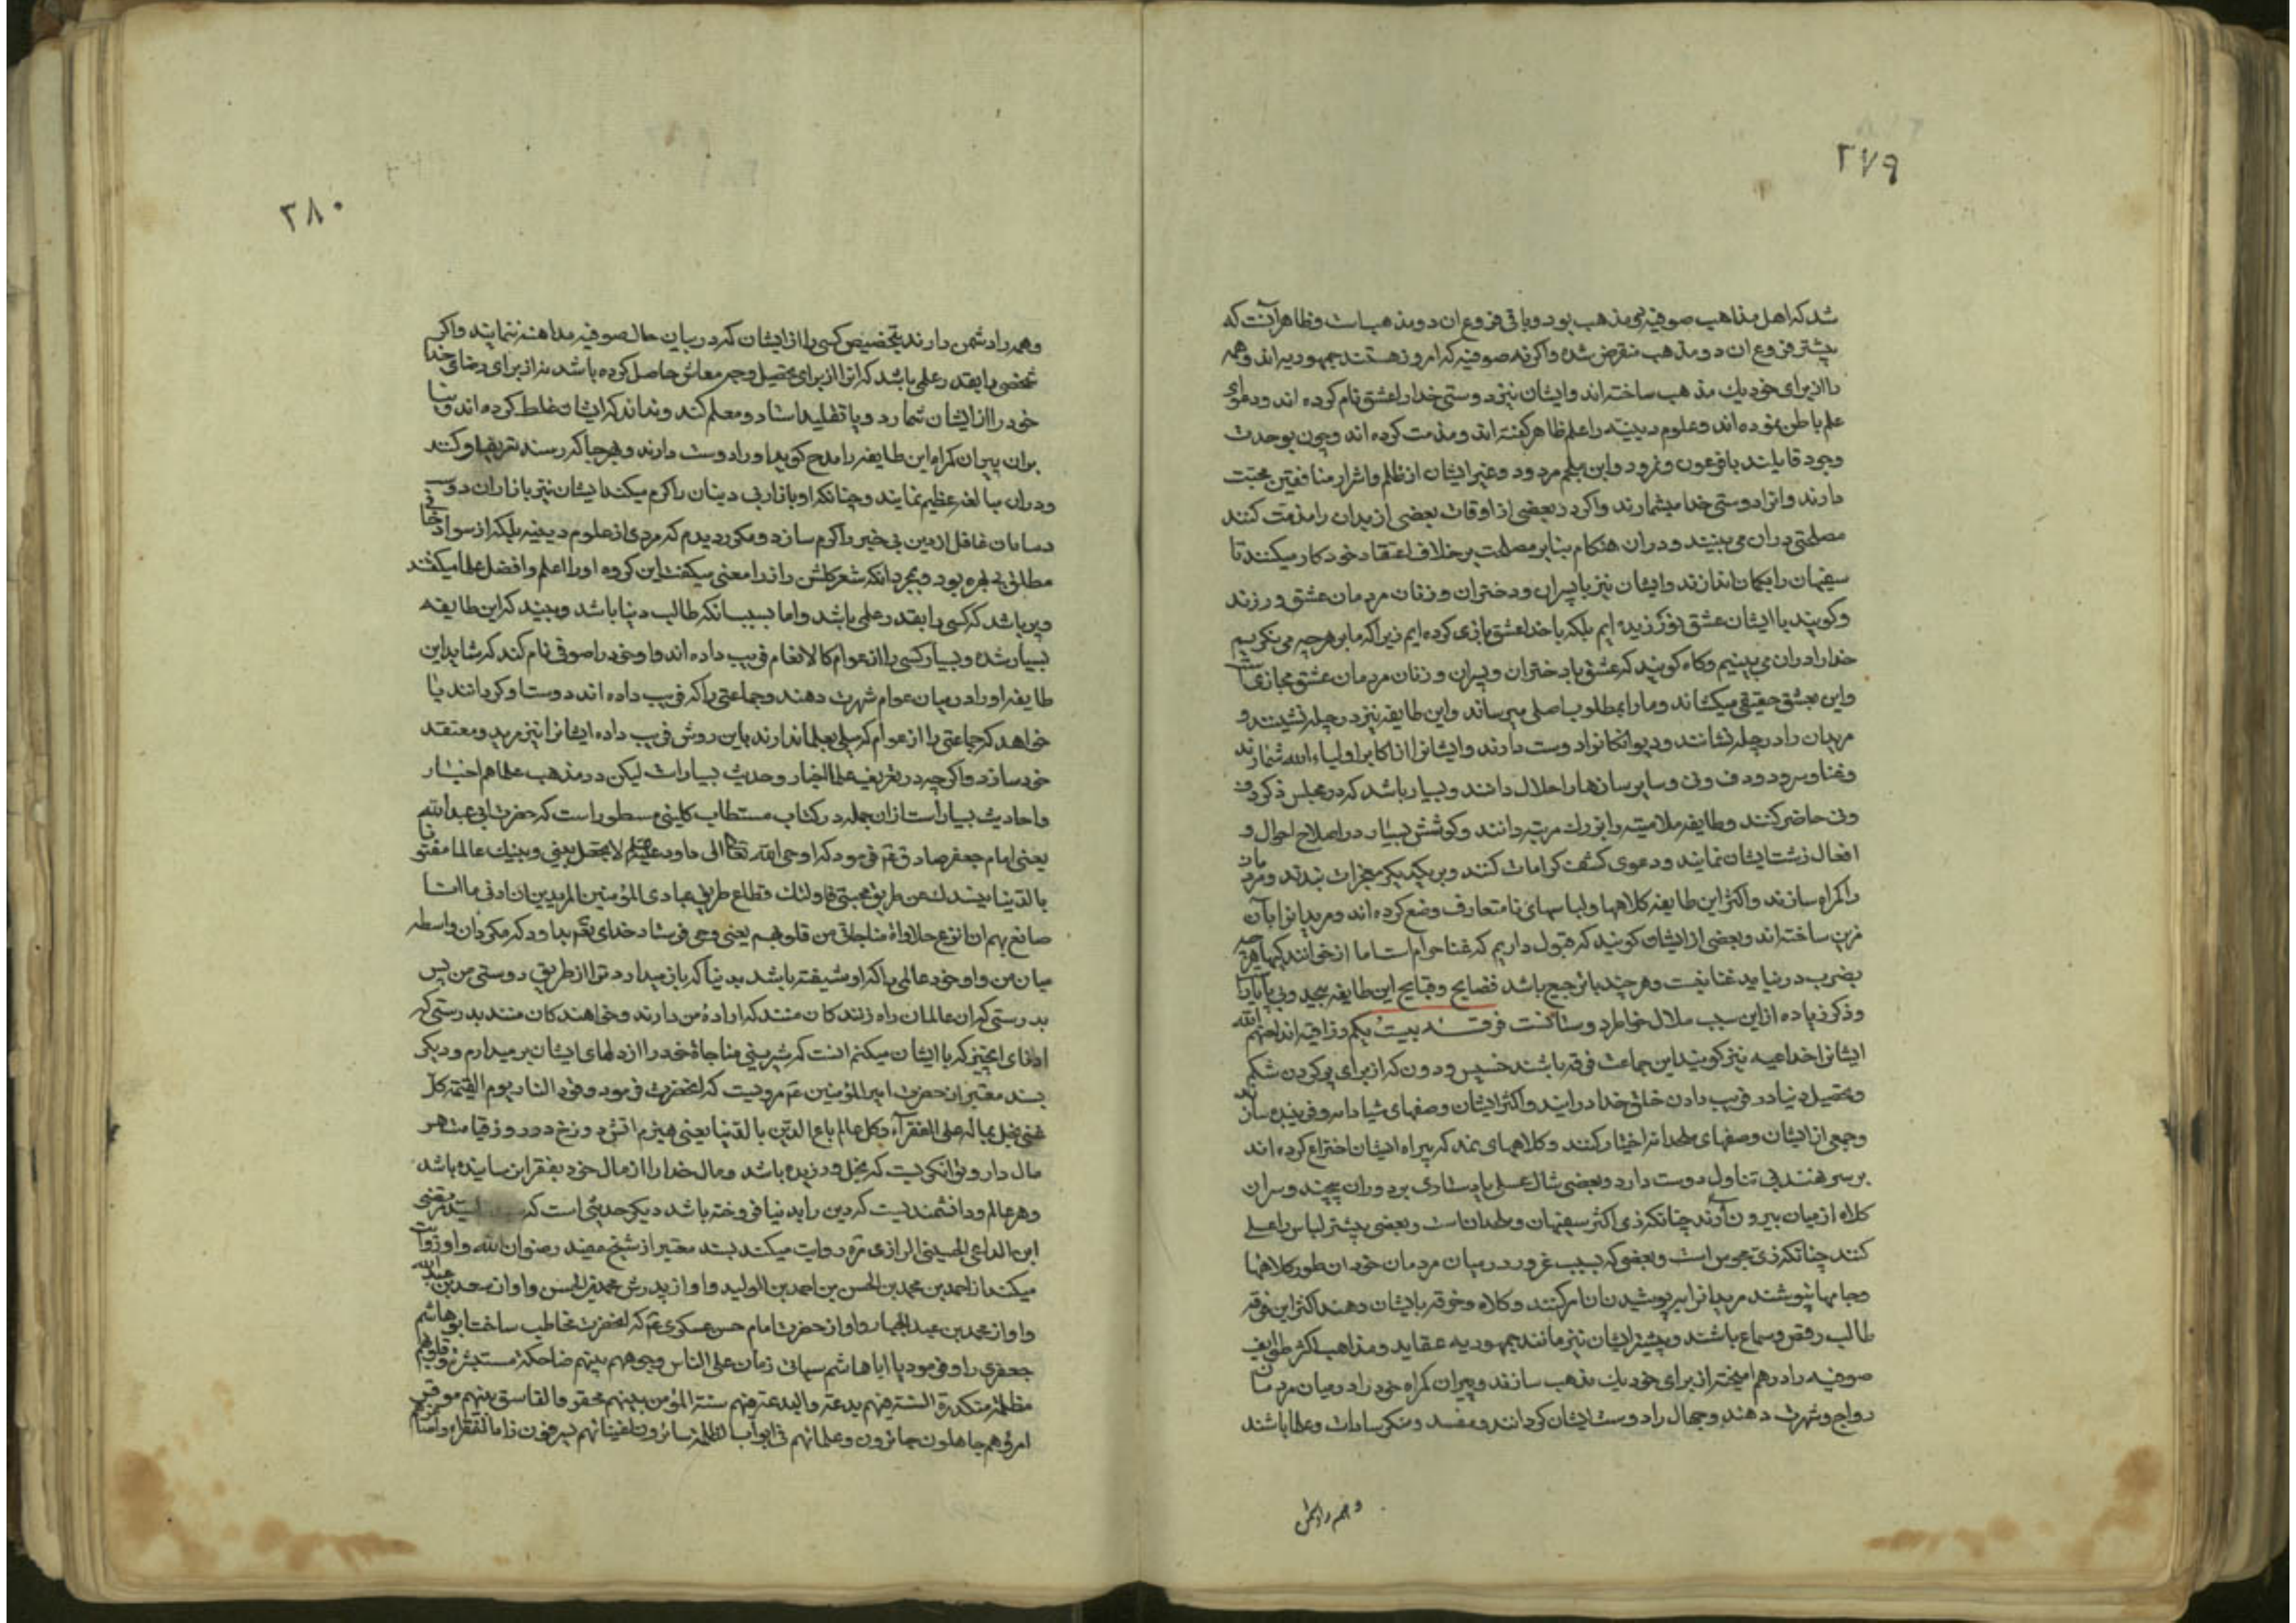 ۲۷۹
شد که اهل مذاهب صوفیه دو مذهب بود و باقی فروع ان دو مذهب است و ظاهر آنست که
پیشتر فروع ان دو مذهب منقرض شده واکر نه صوفیه که امروز هستند جمهوریه اند و همه
را از برای خود یك مذهب ساخته اند و ایشان نیز دوستی خدا را عشق نام کرده اند و دعوای
علم باطن نموده اند و علوم دینیه را علم ظاهر کفته اند و مذمت کرده اند و چون بوحدت
وجود قایلند با فرعون و نمرود و ابن ملجم مردود و غیر ایشان از ظلم و اشرار منافقین محبت
دارند و انرا دوستی خدا میشمارند واکر در بعضی از اوقات بعضی از بدان را مذمت کنند
مصلحتی دران می بینند و دران هنکام بنابر مصلحت بر خلاف اعتقاد خود کار میکنند تا
سفیهان را بکمان اندازند و ایشان نیز با پسران و دختران و زنان مردمان عشق ورزند
و کویند با ایشان عشق نورزیده ایم بلکه با خدا عشق بازی کرده ایم زیرا که ما بر هر چه می نکریم
خدا را دران می بینیم و کاه کویند که عشق با دختران و پسران و زنان مردمان عشق مجازی است
و این بعشق حقیقی میکشاند و ما را بمطلوب اصلی میرساند و این طایفه نیز در چله نشینند و
مریدان را در چله نشانند و دیوانکانرا دوست دارند و ایشانرا از اکابر اولیاء الله شمارند
و غنا و سرود و دف و نی و سایر سازها را حلال دانند و بسیار باشد که در مجلس ذکر دف
و نی حاضر کنند و طایفه ملامتیه را بزرك مرتبه دانند و کوشش بسیار در اصلاح احوال و
افعال زشت ایشان نمایند و دعوی کشف کرامات کنند و بر یکدیکر معجزات بندند و مردمان
را کمراه سازند و اکثر این طایفه کلاهها و لباسهای نا متعارف وضع کرده اند و مریدانرا بآن
مزین ساخته اند و بعضی از ایشان کویند که قبول داریم که غنا حرام است اما از خوانندکیها هر چه
بضرب در نیاید غنا نیست و هر چند با ترجیع باشد فضایح و قبایح این طایفه بیحد و بی پایان است
و ذکر زیاده از این سبب ملال خاطر دوستانست فرقـه بیست یکم رزاقیه اند لعنهم الله
ایشانرا خداعیه نیز کویند این جماعت فرقه باشند خسیس و دون که از برای پر کردن شکم
و تحصیل دنیا در فریب دادن خلق خدا در ایند و اکثر ایشان وصفهای شیادانه و فریبنده سازند
و جمعی از ایشان وصفهای ملحدانه اختیار کنند و کلاههای نمد که پیراه ایشان اختراع کرده اند
بر سر نهند بی تناول دوست دارد و بعضی شال عسلی یا دستاری بر دوران پیچند و سران
کلاه از میان بیرون آرند چنانکه زی اکثر سفیهان و ملحدانست و بعضی پیشتر لباس را عسلی
کنند چنانکه زی مجوس است و بعضی که بسبب غرور در میان مردمان خود ان طور کلاهها
و جامها نپوشند مریدانرا بپوشیدن ان امر کنند و کلاه و خرقه بایشان دهند اکثر این فرقه
طالب رقص و سماع باشند و بیشتر ایشان نیز مانند جمهوریه عقاید و مذاهب اکثر طوایف
صوفیه را در هم امیخته از برای خود یك مذهب سازند و پیران کمراه خود را در میان مردمان
رواج و شهرت دهند و جهال را دوست ایشان کردانند و مفسد و منکر سادات و علما باشند
و همه را دشمن
۲۸۰
و همه را دشمن دارند بتخصیص کسی را از ایشان که در بیان حال صوفیه مداهنه ننمایند واکر
شخصی را بقدر علمی باشد که انرا از برای تحصیل وجه معاش حاصل کرده باشد نه از برای رضای خدا
خود را از ایشان شمارد و یا تقلید استاد و معلم کند و نداند که ایشان غلط کرده اند و بنا
بران پیران کمراه این طایفه را مدح کوید او را دوست دارند و بهر جا که رسند تعریف او کنند
و دران مبالغه عظیم نمایند و چنانکه او بازار بی دینان را کرم میکند ایشان نیز بازاران دوست
دسامان غافل از دین بی خبر را کرم سازد و مکرر دیدم که مردی از علوم دینیه بلکه از سواد خانی
مطلق بی بهره بود و بمجرد انکه شعر کلشن راز را معنی میکفت این کروه او را اعلم و افضل علما میکفتند
و پر باشد که کسی را بقدر علمی باشد و اما بسبب انکه طالب دنیا باشد و بیند که این طایفه
بسیار شده و بسیار کسی را از عوام کالانعام فریب داده اند او خود را صوفی نام کند که شاید این
طایفه او را در میان عوام شهرت دهند و جماعتی را که فریب داده اند دوست او کردانند یا
خواهد که جماعتی را از عوام که میلی بعلما ندارند باین روش فریب داده ایشانرا نیز مرید و معتقد
خود سازد و اکر چه در تعریف علما اخبار و حدیث بسیار است لیکن در مذهب علما هم اخبار
و احادیث بسیار است از ان جمله در کتاب مستطاب کلینی مسطور است که حضرت ابی عبدالله
یعنی امام جعفر صادق ع فرمود که اوحی الله تعالی الی داود علیه السلم لا تجعل بینی و بینك عالما مفتونا
بالدنیا فیصدك عن طریق محبتی فاولئك قطاع طریق عبادی المؤمنین المریدین ان ادنی ما انا
صانع بهم ان انزع حلاوة مناجاتی من قلوبهم یعنی وحی فرستاد خدای تع بداود که مکردان واسطه
میان من و او خود عالمی را که او شیفته باشد بدنیا که باز میدارد ترا از طریق دوستی من پس
بدرستی که ان عالمان راه زنندکانمند که ارادهٔ من دارند و خواهندکان منند بدرستی که
ادنای انچیز که با ایشان میکنم انست که شیرینی مناجاة خود را از دلهای ایشان بر میدارم و دیکر
بسند معتبر از حضرت امیر المؤمنین ع مرویست که انحضرت فرمود وقود النار یوم القیمة کل
غنی بخل بماله علی الفقراء و کل عالم باع الدین بالدنیا یعنی هیزم اتش دوزخ در روز قیامت هر
مال دار و توانکریست که بخل ورزیده باشد و مال خدا را از مال خود بفقرا نرسانیده باشد
و هر عالم و دانشمندیست که دین را بدنیا فروخته باشد دیکر حدیثی است که سید مرتضی
ابن الداعی الحسینی الرازی ره روایت میکند بسند معتبر از شیخ مفید رضوان الله و او روایت
میکند از احمد بن محمد بن الحسن بن احمد بن الولید و او از پدرش محمد بن الحسن و او از سعد بن عبد الله
و او از محمد بن عبد الجبار و او از حضرت امام حسن عسکری ع که انحضرت مخاطب ساخت ابو هاشم
جعفری را و فرمود یا ابا هاشم سیاتی زمان علی الناس وجوههم ضاحکة مستبشرة و قلوبهم
مظلمة متکدرة السنة فیهم بدعة والبدعة فیهم سنة المؤمن بینهم محقر والفاسق بینهم موقر
امراؤهم جاهلون جائرون وعلمائهم فی ابواب الظلمة سائرون اغنیائهم یسرقون زاد الفقراء واصاغرهم